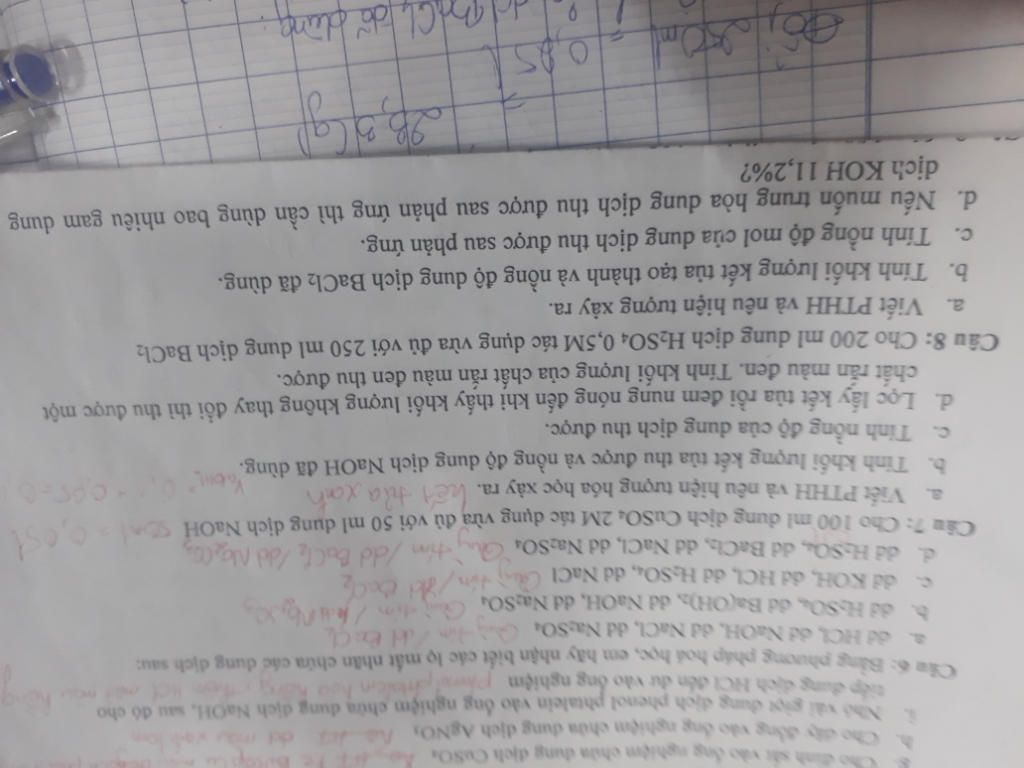 g. Cho đinh sắt vào ống nghiệm chứa dung dịch CuSO₄
h. Cho dây đồng vào ống nghiệm chứa dung dịch AgNO₃
i. Nhỏ vài giọt dung dịch phenol phtalein vào ống nghiệm chứa dung dịch NaOH, sau đó cho
tiếp dung dịch HCl đến dư vào ống nghiệm
Câu 6: Bằng phương pháp hoá học, em hãy nhận biết các lọ mất nhãn chứa các dung dịch sau:
a. dd HCl, dd NaOH, dd NaCl, dd Na₂SO₄ Quỳ tím/dd BaCl₂
b. dd H₂SO₄, dd Ba(OH)₂, dd NaOH, dd Na₂SO₄ Quỳ tím /
c. dd KOH, dd HCl, dd H₂SO₄, dd NaCl Quỳ tím/dd BaCl₂
d. dd H₂SO₄, dd BaCl₂, dd NaCl, dd Na₂SO₄ Quỳ tím /dd BaCl₂/dd Na₂CO₃
Câu 7: Cho 100 ml dung dịch CuSO₄ 2M tác dụng vừa đủ với 50 ml dung dịch NaOH 50ml = 0,05l
a. Viết PTHH và nêu hiện tượng hóa học xảy ra. kết tủa xanh
b. Tính khối lượng kết tủa thu được và nồng độ dung dịch NaOH đã dùng.
c. Tính nồng độ của dung dịch thu được.
d. Lọc lấy kết tủa rồi đem nung nóng đến khi thấy khối lượng không thay đổi thì thu được một
chất rắn màu đen. Tính khối lượng của chất rắn màu đen thu được.
Câu 8: Cho 200 ml dung dịch H₂SO₄ 0,5M tác dụng vừa đủ với 250 ml dung dịch BaCl₂
a. Viết PTHH và nêu hiện tượng xảy ra.
b. Tính khối lượng kết tủa tạo thành và nồng độ dung dịch BaCl₂ đã dùng.
c. Tính nồng độ mol của dung dịch thu được sau phản ứng.
d. Nếu muốn trung hòa dung dịch thu được sau phản ứng thì cần dùng bao nhiêu gam dung
dịch KOH 11,2%?
23,3 (g)
250ml = 0,25 l
dd BaCl₂ đã dùng: